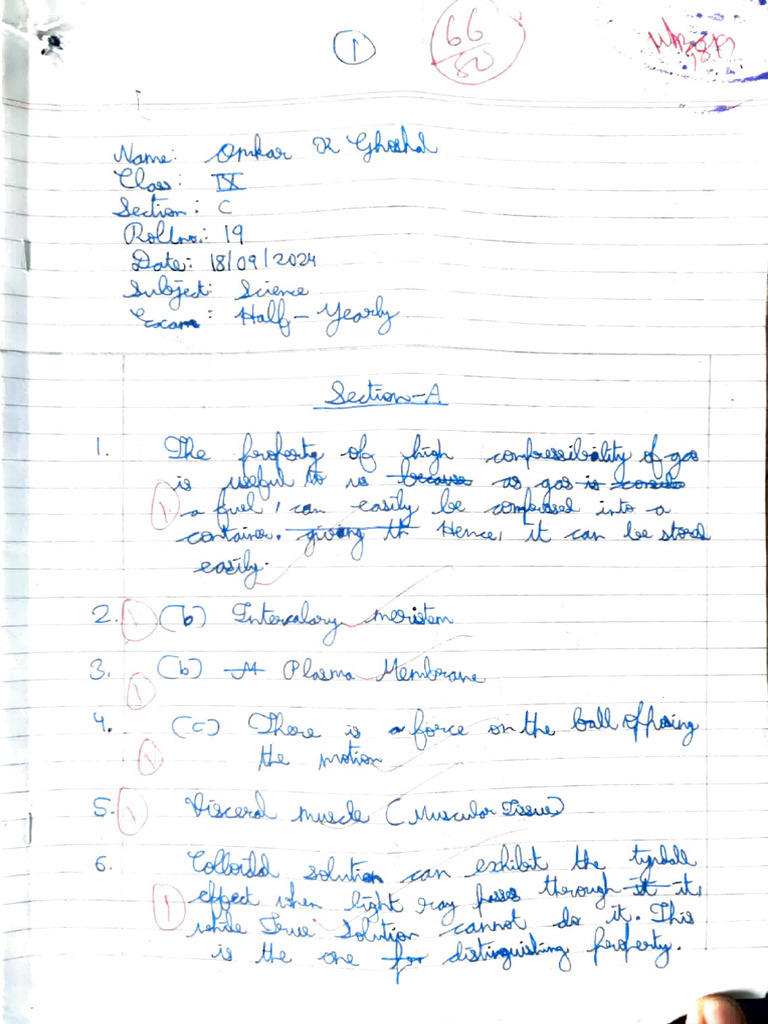 1
66
80
Name: Omkar K Ghoshal
Class: IX
Section: C
Rollno.: 19
Date: 18/09/2024
Subject: Science
Exam: Half-Yearly
Section-A
1. The property of high compressibility of gas
is useful to us because as gas is
1 a fuel, can easily be compressed into a
container. giving th Hence, it can be stored
easily.
2. 1 (b) Intercalary meristem
3. (b) M Plasma Membrane
1
4. (c) There is a force on the ball opposing
1 the motion
5. 1 Visceral muscle (Muscular Tissue)
6. Colloidal solution can exhibit the tyndall
1 effect when light ray pass through it it,
while True Solution cannot do it. This
is the one for distinguishing property.